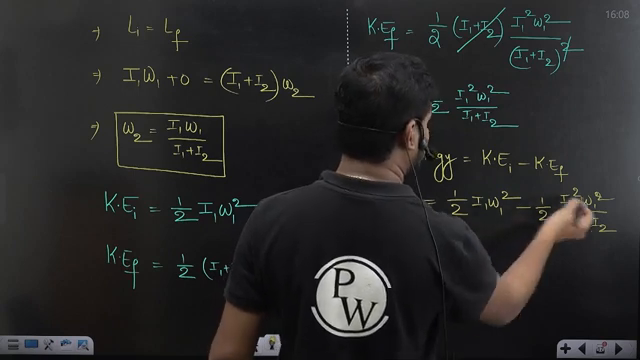 ⇒ L₁ = L_f
⇒ I₁ω₁ + 0 = (I₁+I₂) ω₂
⇒ ω₂ = I₁ω₁ / I₁+I₂
K.Eᵢ = 1/2 I₁ω₁²
K.E_f = 1/2 (I₁+
K.E_f = 1/2 (I₁+I₂) I₁²ω₁² / (I₁+I₂)²
I₁²ω₁² / I₁+I₂
gy = K.Eᵢ − K.E_f
= 1/2 I₁ω₁² − 1/2
16:08
PW